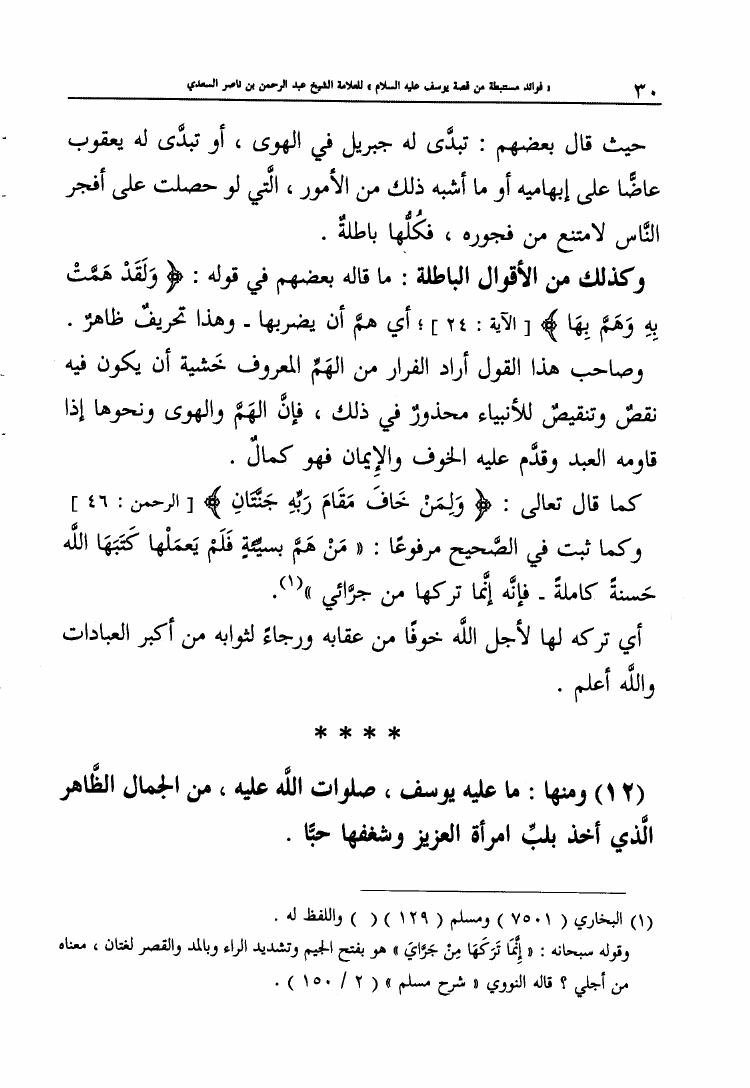 ٣٠ « فوائد مستنبطة من قصة يوسف عليه السلام » للعلامة الشيخ عبد الرحمن بن ناصر السعدي
حيث قال بعضهم : تبدَّى له جبريل في الهوى ، أو تبدَّى له يعقوب
عاضًّا على إبهاميه أو ما أشبه ذلك من الأمور ، الَّتي لو حصلت على أفجر
النَّاس لامتنع من فجوره ، فكُلُّها باطلةٌ .
وكذلك من الأقوال الباطلة : ما قاله بعضهم في قوله : ﴿ وَلَقَدْ هَمَّتْ
بِهِ وَهَمَّ بِهَا ﴾ [ الآية : ٢٤ ] ؛ أي همَّ أن يضربها ـ وهذا تحريفٌ ظاهرٌ .
وصاحب هذا القول أراد الفرار من الهَمِّ المعروف خَشية أن يكون فيه
نقصٌ وتنقيصٌ للأنبياء محذورٌ في ذلك ، فإنَّ الهَمَّ والهوى ونحوها إذا
قاومه العبد وقدَّم عليه الخوف والإيمان فهو كمالٌ .
كما قال تعالى : ﴿ وَلِمَنْ خَافَ مَقَامَ رَبِّهِ جَنَّتَانِ ﴾ [ الرحمن : ٤٦ ]
وكما ثبت في الصَّحيح مرفوعًا : « مَنْ هَمَّ بسيِّئةٍ فَلَمْ يَعمَلْها كَتَبَهَا اللَّه
حَسنةً كاملةً ـ فإنَّه إنَّما تركها من جرَّائي »(١).
أي تركه لها لأجل اللَّه خوفًا من عقابه ورجاءً لثوابه من أكبر العبادات
واللَّه أعلم .
* * * *
(١٢) ومنها : ما عليه يوسف ، صلوات اللَّه عليه ، من الجمال الظَّاهر
الَّذي أخذ بلبِّ امرأة العزيز وشغفها حبًّا .
(١) البخاري ( ٧٥٠١ ) ومسلم ( ١٢٩ ) ( ) واللفظ له .
وقوله سبحانه : « إِنَّمَا تَرَكَهَا مِنْ جَرَّايَ » هو بفتح الجيم وتشديد الراء وبالمد والقصر لغتان ، معناه
من أجلي ؟ قاله النووي « شرح مسلم » ( ٢ / ١٥٠ ) .